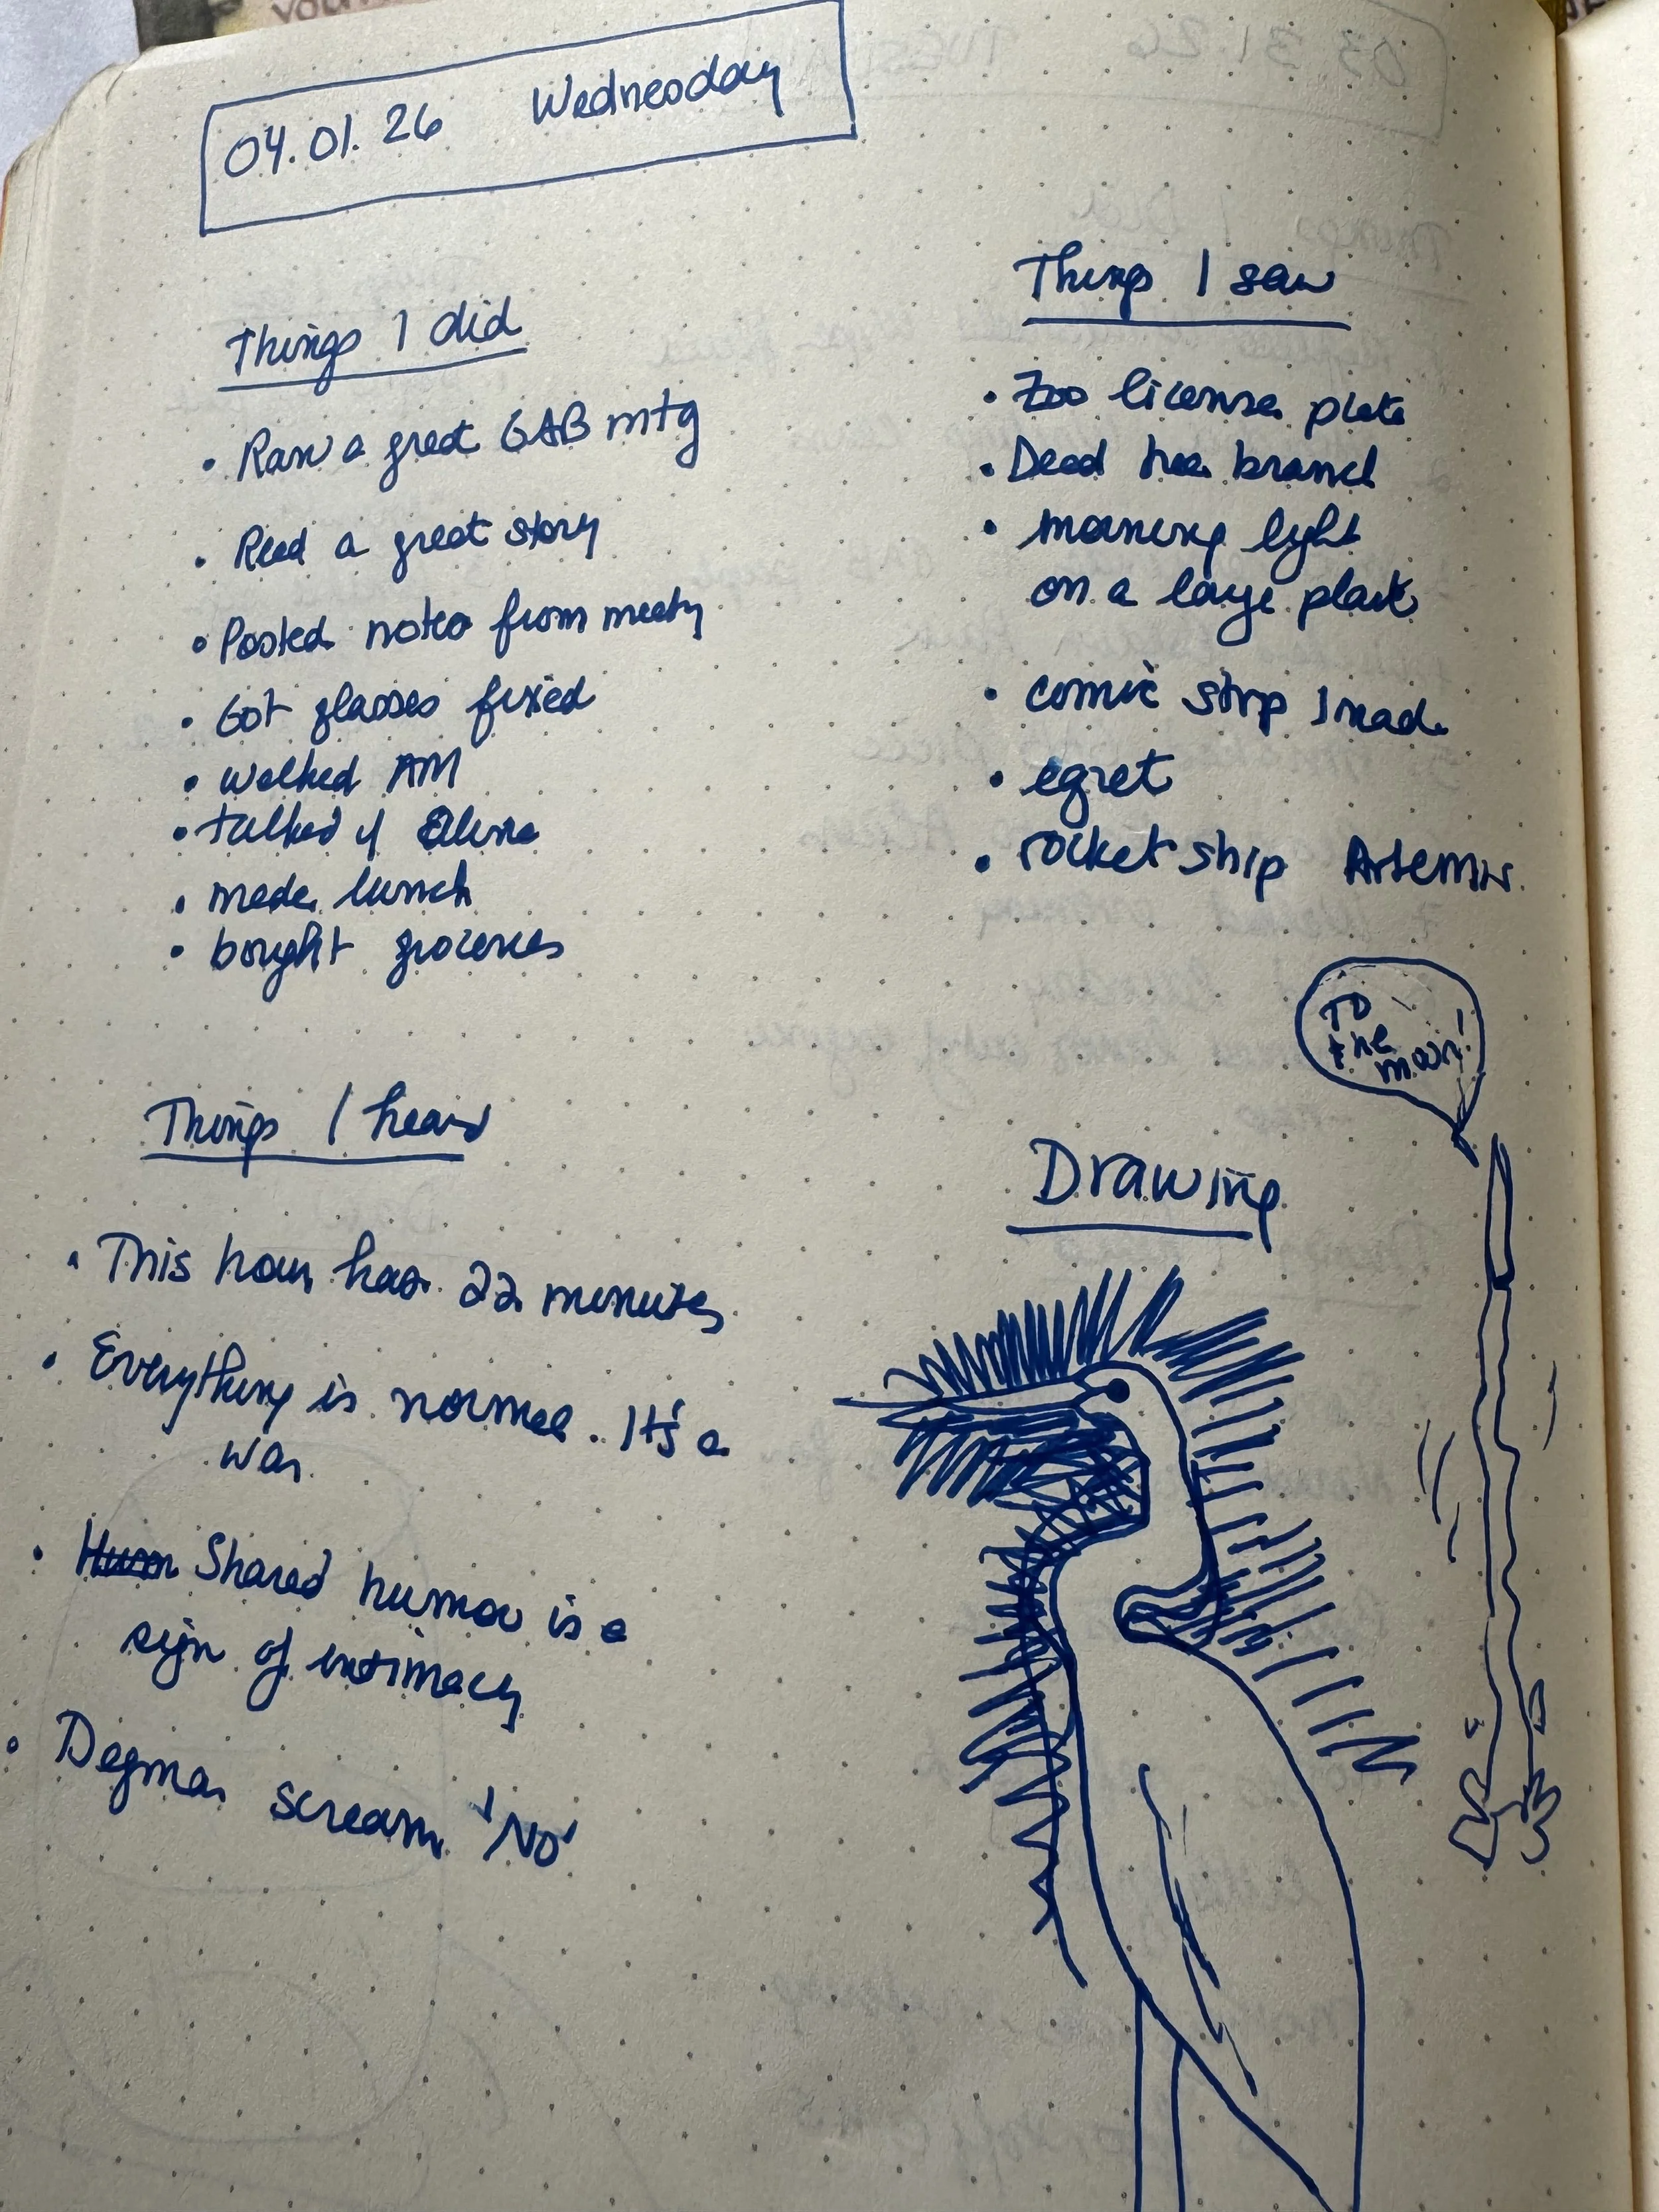 04.01.26 Wednesday
Things I did
• Ran a great GAB mtg
• Read a great story
• Posted notes from meetg
• Got glasses fixed
• walked AM
• talked w/
• made lunch
• bought groceries
Things I saw
• Zoo license plate
• Dead tree branch
• morning light
on a large plant
• comic strip I made
• egret
• rocket ship Artemis
Things I heard
• This hour has 22 minutes
• Everything is normal. It's a
war.
• Shared humor is a
sign of intimacy
• Degma scream 'NO'
Drawing
To
the
moon!